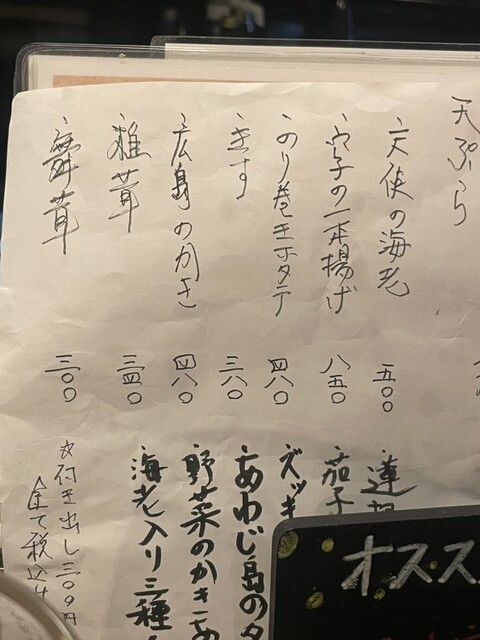 天ぷら
天使の海老 五〇〇
穴子の一本揚げ 八五〇
のり巻きホタテ 四八〇
きす 三八〇
広島のかき 四八〇
椎茸 三四〇
舞茸 三〇〇
蓮根
茄子
ズッキ
あわじ島のタ
野菜のかきあ
海老入り三種
付き出し三〇〇円
全て税込
オスス